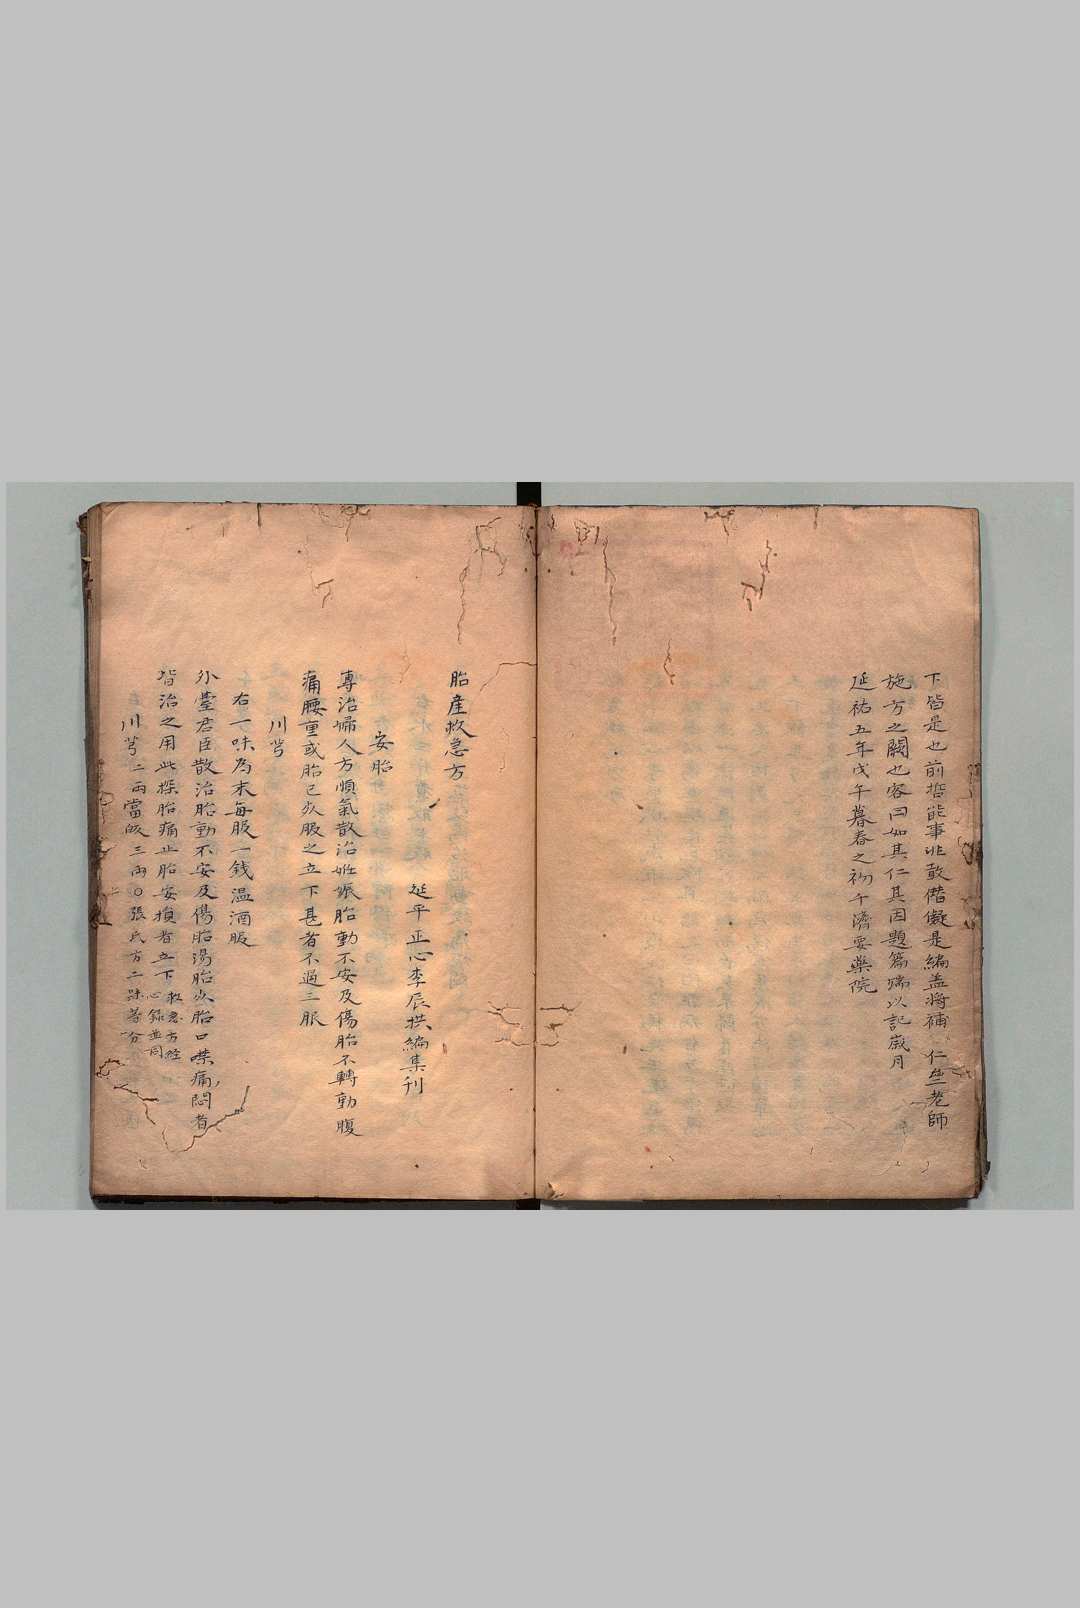 下皆是也前哲能事非敢僭儗是編盖将補 仁𡉏老師
施方之闕也客曰如其仁其因題篇端以記歲月
延祐五年戊午暮春之初午濟要藥院
胎産救急方
延平正心李辰拱編集刊
安胎
專治婦人方順氣散治妊娠胎動不安及傷胎不轉動腹
痛腰重或胎已死服之立下甚者不過三服
川芎
右一味為末每服一錢温酒服
外臺君臣散治胎動不安及傷胎湯胎死胎口噤痛悶者
皆治之用此探胎痛止胎安損者立下 救急方經心録並同
川芎二兩當皈三兩〇張氏方二味等分